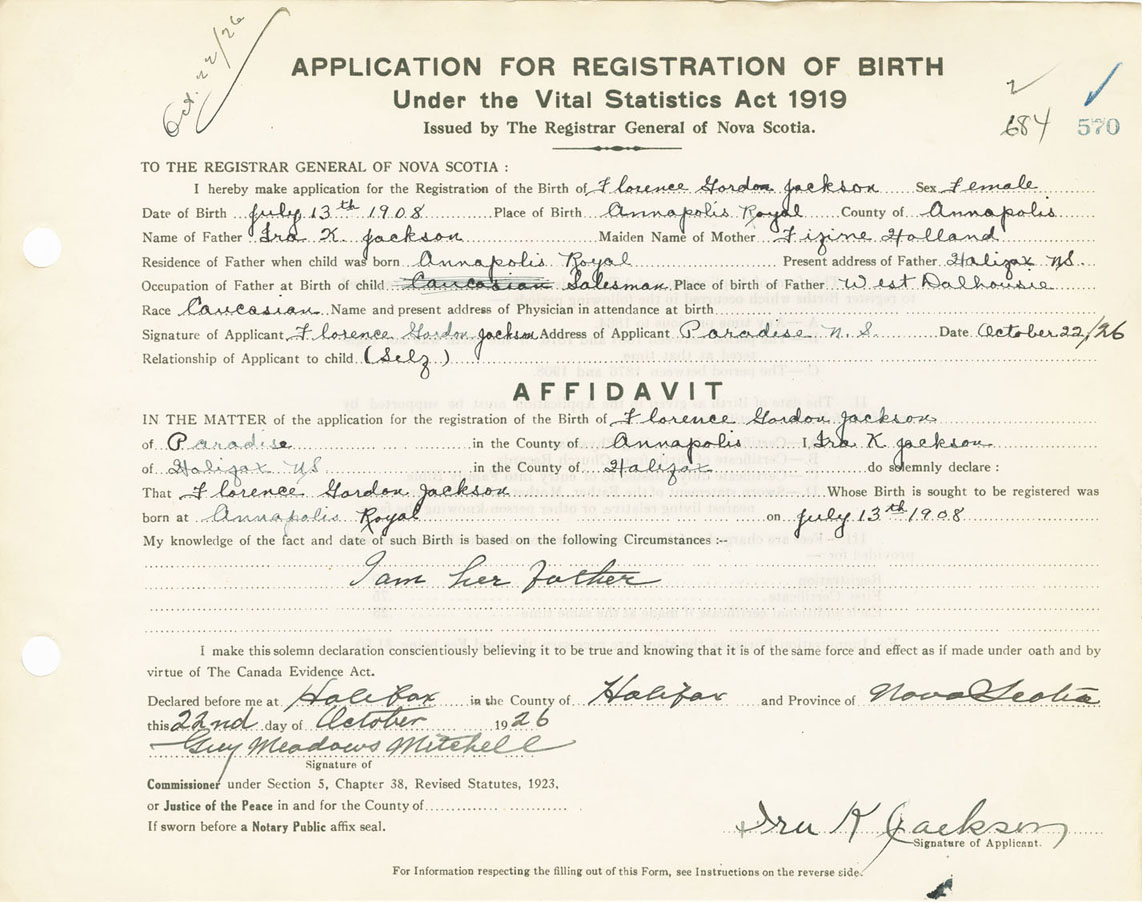 Oct. 22/26
APPLICATION FOR REGISTRATION OF BIRTH
Under the Vital Statistics Act 1919
Issued by The Registrar General of Nova Scotia.
684 570
TO THE REGISTRAR GENERAL OF NOVA SCOTIA :
I hereby make application for the Registration of the Birth of Florence Gordon Jackson Sex Female
Date of Birth July 13th 1908 Place of Birth Annapolis Royal County of Annapolis
Name of Father Ira K. Jackson Maiden Name of Mother Holland
Residence of Father when child was born Annapolis Royal Present address of Father Halifax NS.
Occupation of Father at Birth of child Caucasian Salesman Place of birth of Father West Dalhousie
Race Caucasian Name and present address of Physician in attendance at birth
Signature of Applicant Florence Gordon Jackson Address of Applicant Paradise N. S. Date October 22/26
Relationship of Applicant to child (Self)
AFFIDAVIT
IN THE MATTER of the application for the registration of the Birth of Florence Gordon Jackson
of Paradise in the County of Annapolis I, Ira K Jackson
of Halifax NS in the County of Halifax do solemnly declare :
That Florence Gordon Jackson Whose Birth is sought to be registered was
born at Annapolis Royal on July 13th 1908
My knowledge of the fact and date of such Birth is based on the following Circumstances :--
I am her father
I make this solemn declaration conscientiously believing it to be true and knowing that it is of the same force and effect as if made under oath and by
virtue of The Canada Evidence Act.
Declared before me at Halifax in the County of Halifax and Province of Nova Scotia
this 22nd day of October 1926
Guy Meadows Mitchell
Signature of
Commissioner under Section 5, Chapter 38, Revised Statutes, 1923,
or Justice of the Peace in and for the County of
If sworn before a Notary Public affix seal.
Ira K Jackson
Signature of Applicant.
For Information respecting the filling out of this Form, see Instructions on the reverse side.